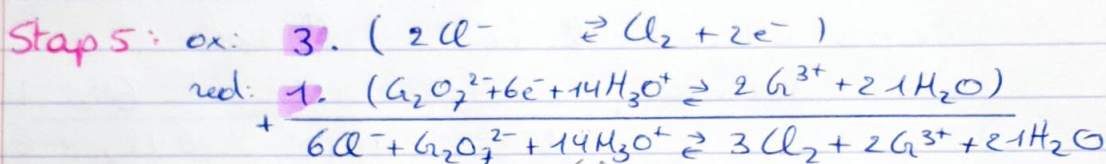 Stap 5: ox: 3. ( 2Cl⁻ ⇄ Cl₂ + 2e⁻ )
red: 1. (Cr₂O₇²⁻+6e⁻+14H₃O⁺ ⇄ 2Cr³⁺+21H₂O)
+ 6Cl⁻+Cr₂O₇²⁻+14H₃O⁺ ⇄ 3Cl₂+2Cr³⁺+21H₂O